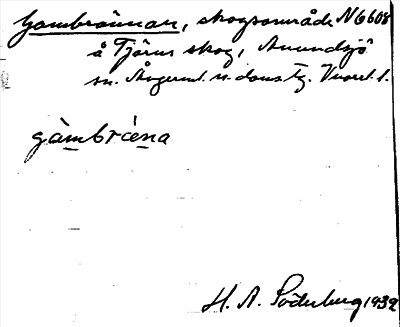 Gambrännan, skogsområde N6608
å Tjärns skog, Anundsjö
sn. Ångerml. n. doms tg. Vuoret 1.
gàmbrǽna
H. A. Söderberg 1932